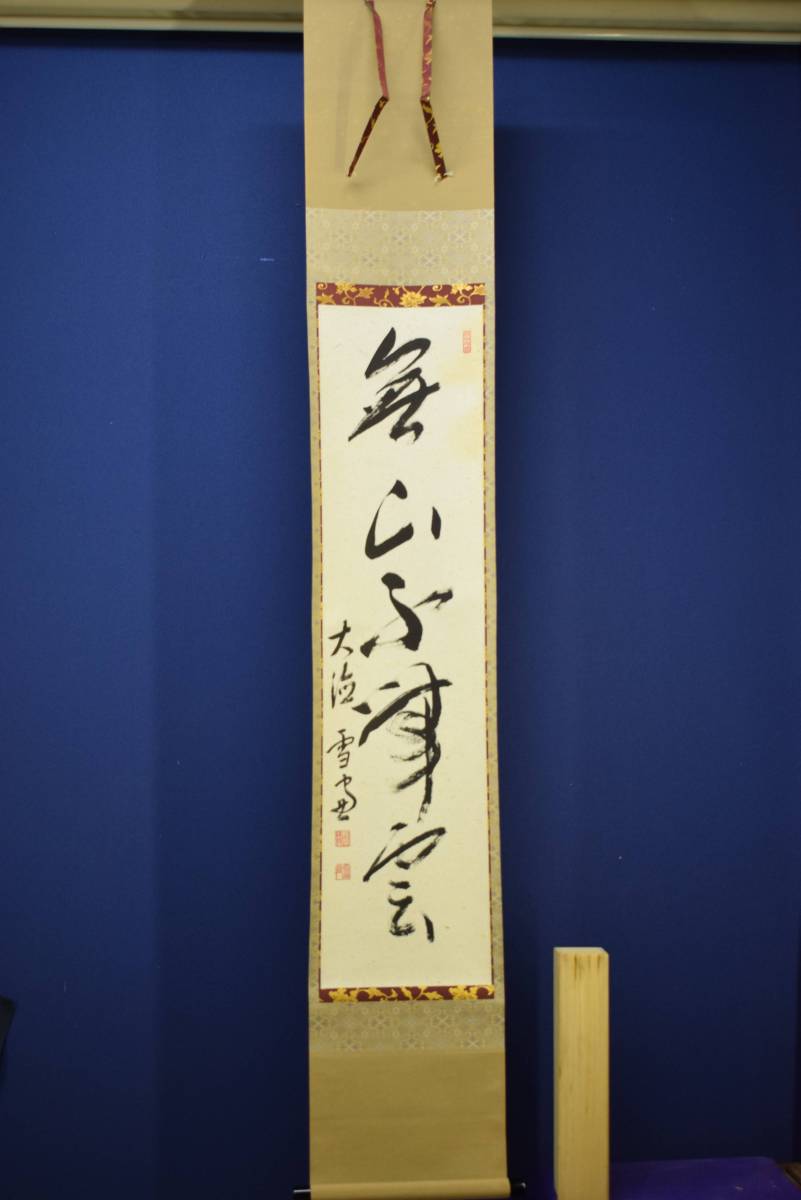 無山不帯雲
大徳 雪